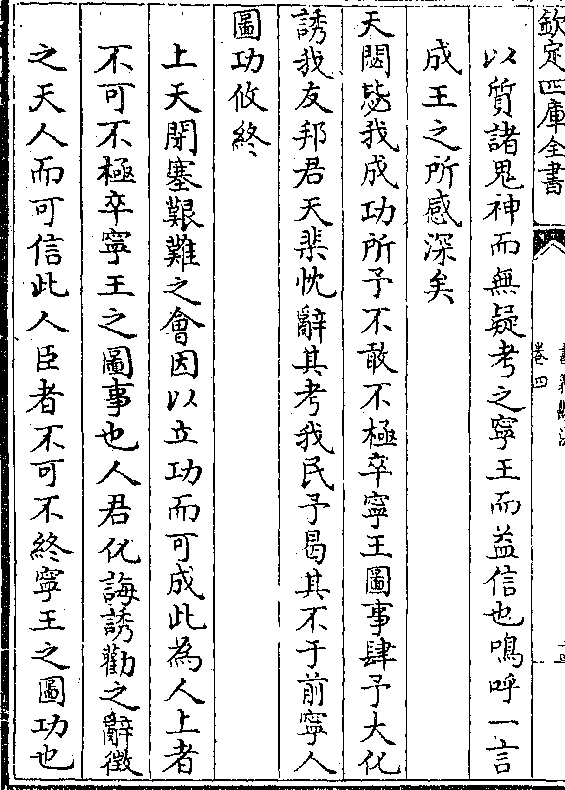 欽定四庫全書
卷四
以質諸鬼神而無疑考之寧王而益信也嗚呼一言
成王之所感深矣
天閟毖我成功所予不敢不極卒寧王圖事肆予大化
誘我友邦君天棐忱辭其考我民予曷其不于前寧人
圖功攸終
上天閉塞艱難之會因以立功而可成此為人上者
不可不極卒寧王之圖事也人君化誨誘勸之辭徵
之天人而可信此人臣者不可不終寧王之圖功也